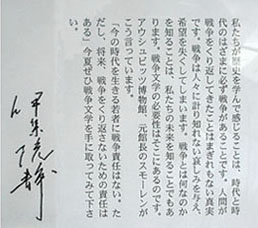 私たちが歴史を学んで感じることは、時代と時
代のはざまに必ず戦争があることです。人間が
戦争をくり返してきたことはまぎれもない真実
です。戦争は人々に計り知れない哀しみを与え、
希望を失くしてしまいます。戦争とは何なのか
を知ることは、私たちの未来を知ることでもあ
ります。戦争文学の必要性はそこにあるのです。
アウシュビッツ博物館、元館長のスモーレンが
こう言っています。
「今の時代を生きる若者に戦争責任はない。た
だし、将来、戦争をくり返さないための責任は
ある」今夏ぜひ戦争文学を手に取ってみて下さ
い。